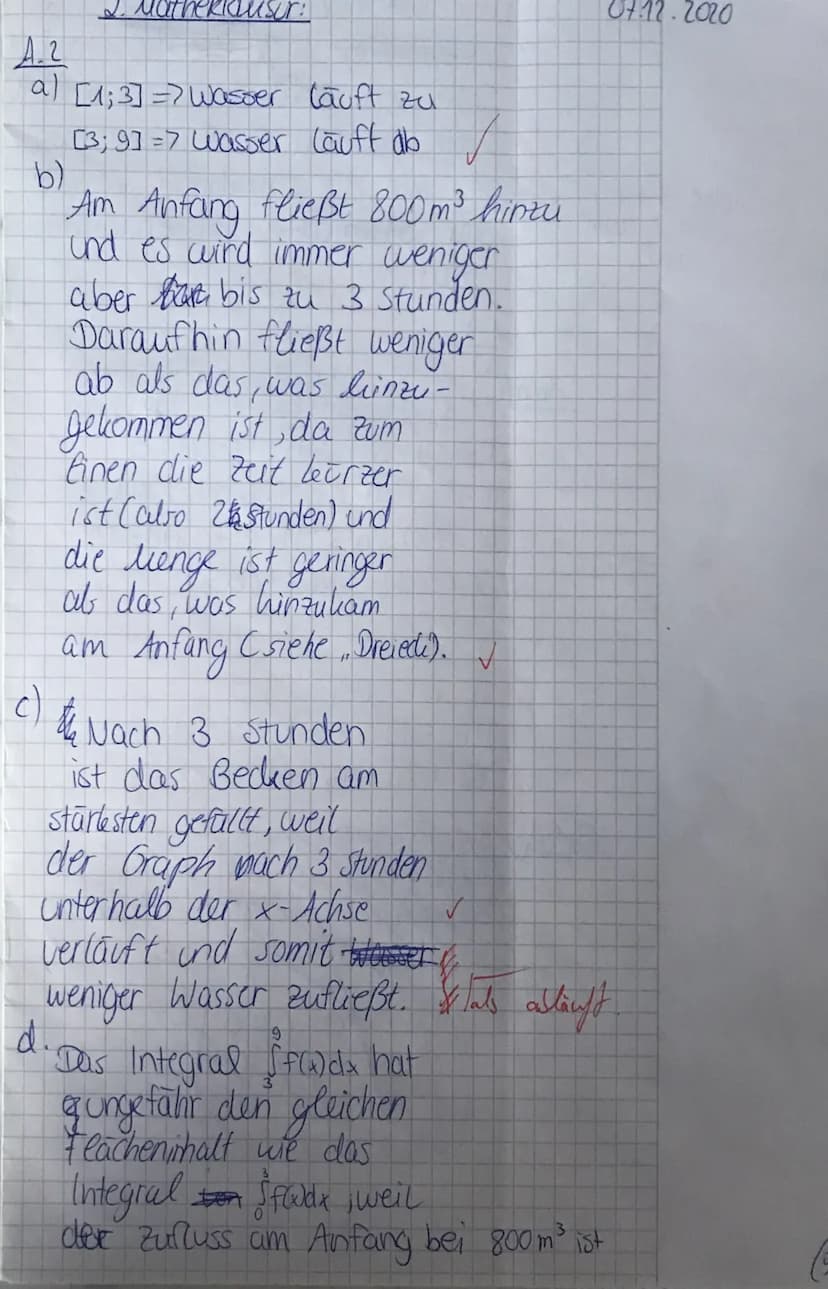 2. Matheklausur:
07.12.2020
A.2
a) [1;3] => Wasser läuft zu
[3;9] => Wasser läuft ab
b)
Am Anfang fließt 800m³ hinzu
und es wird immer weniger
aber bis zu 3 Stunden.
Daraufhin fließt weniger
ab als das, was hinzu-
gekommen ist, da zum
Einen die Zeit kürzer
ist (also 2 Stunden) und
die Menge ist geringer
als das, was hinzukam
am Anfang (siehe „Dreieck).
c)
Nach 3 Stunden
ist das Becken am
stärksten gefüllt, weil
der Graph nach 3 Stunden
unterhalb der x-Achse
verläuft und somit Wasser
weniger Wasser zufließt. als abläuft.
d.
Das Integral ∫₃⁹f(x)dx hat
ungefähr den gleichen
Flächeninhalt wie das
Integral ∫₀³f(x)dx, weil
der Zufluss am Anfang bei 800m³ ist